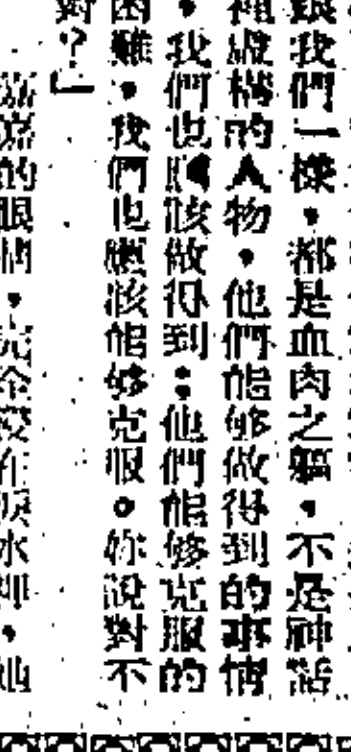 跟我們一樣，都是血肉之軀，不是神話
裡虛構的人物，他們能够做得到的事情
，我們也應該做得到；他們能够克服的
困難，我們也應該能够克服。妳說對不
對？」
嘉嘉的眼睛，完全浸在淚水裡，她